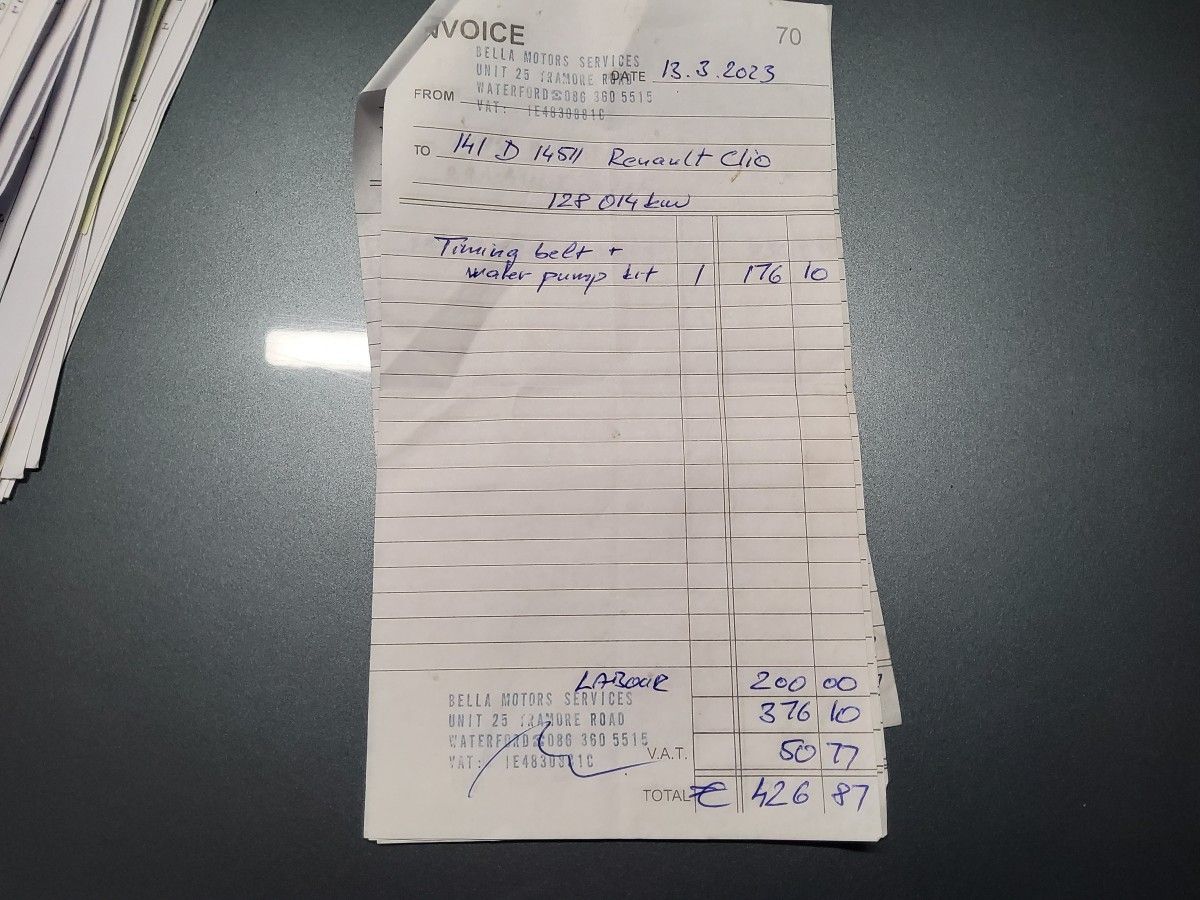 NVOICE 70
BELLA MOTORS SERVICES
UNIT 25 TRAMORE ROAD
DATE 13.3.2023
WATERFORD ☎086 360 5515
FROM
VAT: IE4830981C
TO 141 D 14511 Renault Clio
128 014 km
Timing belt +
water pump kit 1 176 10
LABOUR 200 00
BELLA MOTORS SERVICES
376 10
UNIT 25 TRAMORE ROAD
WATERFORD ☎086 360 5515
V.A.T. 50 77
VAT: IE4830981C
TOTAL € 426 87